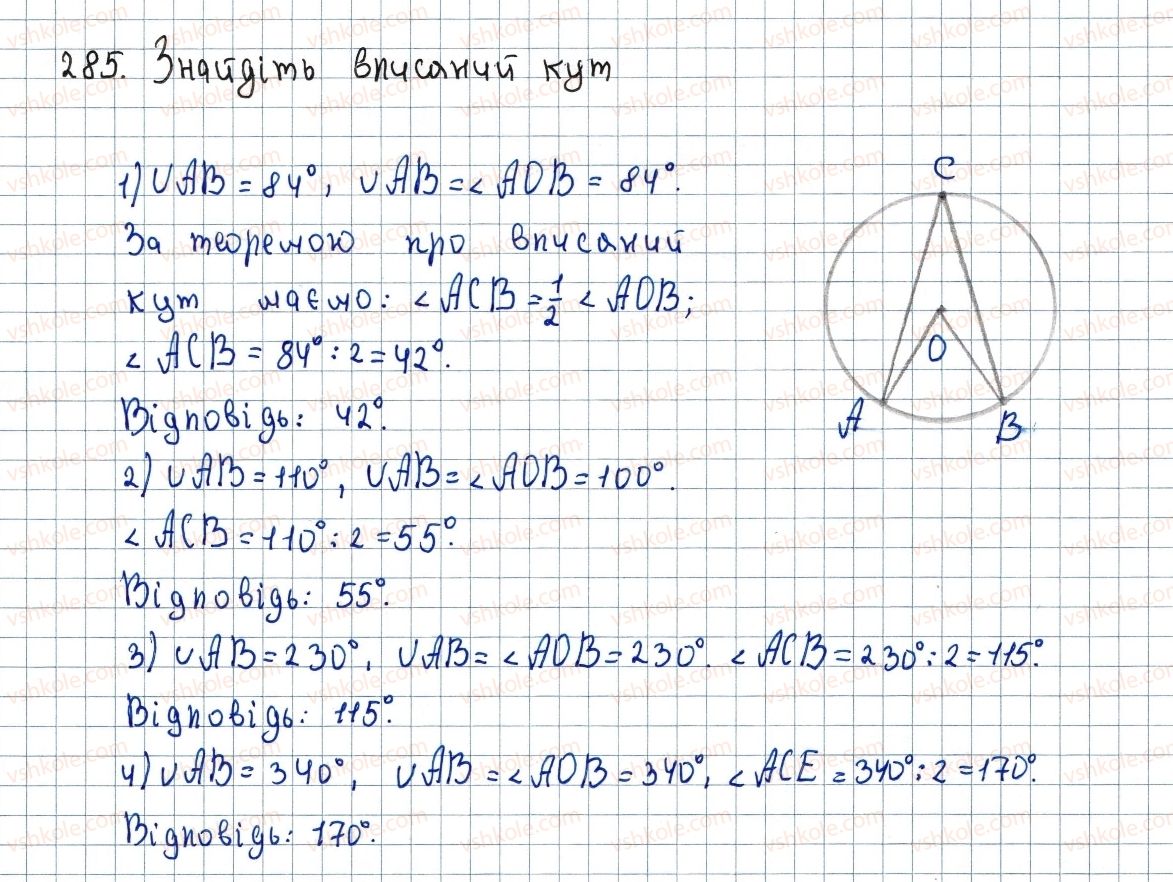 285. Знайдіть вписаний кут
1) ∪AB = 84°, ∪AB = < AOB = 84°.
За теоремою про вписаний
кут маємо: < ACB = 1/2 < AOB;
< ACB = 84° : 2 = 42°.
Відповідь: 42°.
2) ∪AB = 110°, ∪AB = < AOB = 100°.
< ACB = 110° : 2 = 55°.
Відповідь: 55°.
3) ∪AB = 230°, ∪AB = < AOB = 230°. < ACB = 230° : 2 = 115°.
Відповідь: 115°.
4) ∪AB = 340°, ∪AB = < AOB = 340°, < ACE = 340° : 2 = 170°.
Відповідь: 170°.
C
O
A
B
vshkole.com